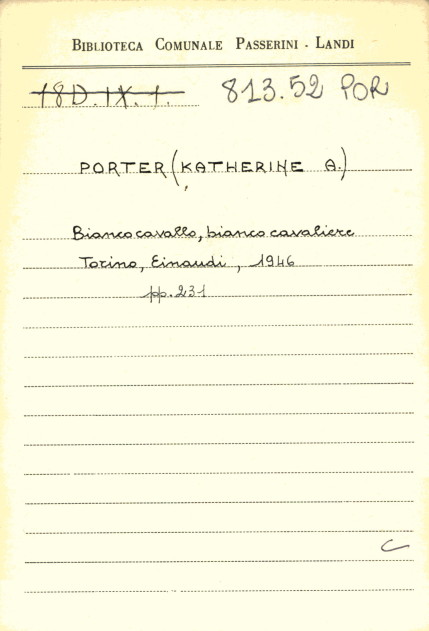 BIBLIOTECA COMUNALE PASSERINI - LANDI
18D.IX.1. 813.52 POR
PORTER (KATHERINE A.)
Bianco cavallo, bianco cavaliere
Torino, Einaudi, 1946
pp. 231
C